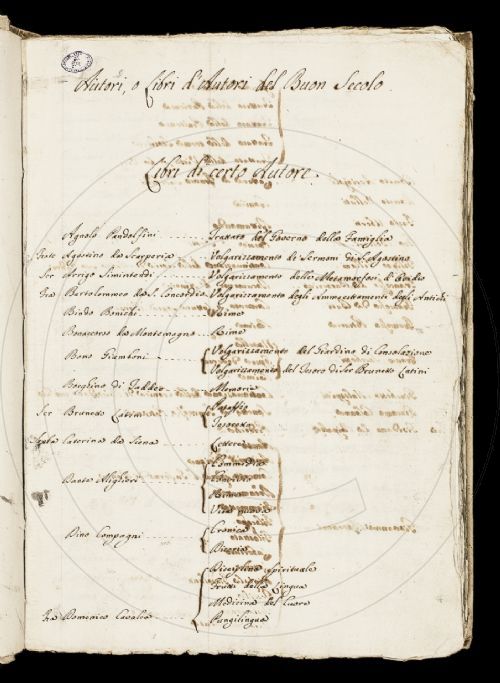 Autori, o Libri d'Autori del Buon Secolo.
Libri di certo Autore.
Agnolo Pandolfini Trattato del Governo della Famiglia
Frate Agostino da Scarperia Volgarizzamento di Sermoni di S. Agostino
Ser Arrigo Simintendi Volgarizzamento delle Metamorfosi d'Ovidio
Fra Bartolommeo da S. Concordio Volgarizzamento degli Ammaestramenti degli Antichi
Bindo Bonichi Rime
Bonaccorso da Montemagno Rime
Bono Giamboni Volgarizzamento del Giardino di Consolazione
Volgarizzamento del Tesoro di Ser Brunetto Latini
Borghino di Taddeo Memorie
Ser Brunetto Latini Pataffio
Tesoretto
Santa Caterina da Siena Lettere
Dante Alighieri Commedia
Convivio
Rime
Vita nuova
Dino Compagni Cronica
Diceria
Disciplina Spirituale
Frutti della Lingua
Medicina del Cuore
Fra Domenico Cavalca Pungilingua